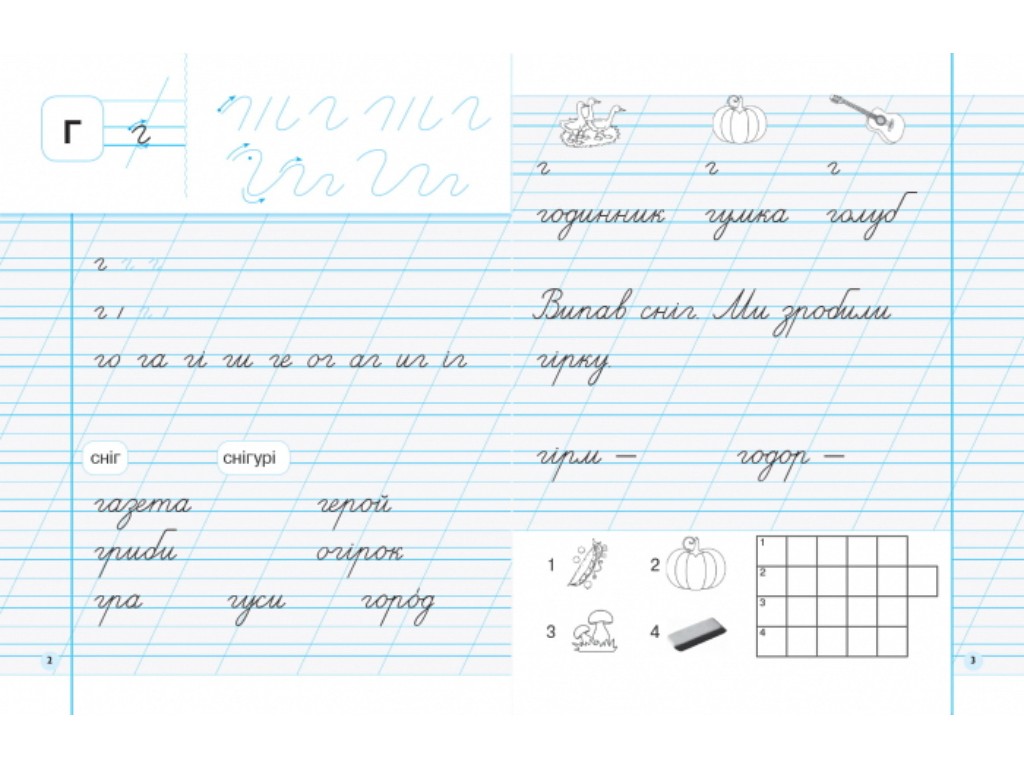 г г
г г г
г
го га гі ги ге ог аг иг іг
сніг снігурі
газета герой
гриби огірок
гра гуси горо́д
2
г г г
годинник гумка голуб
Випав сніг. Ми зробили
гірку.
гірм — годор —
1 2 1
2
3 4 3
4
3